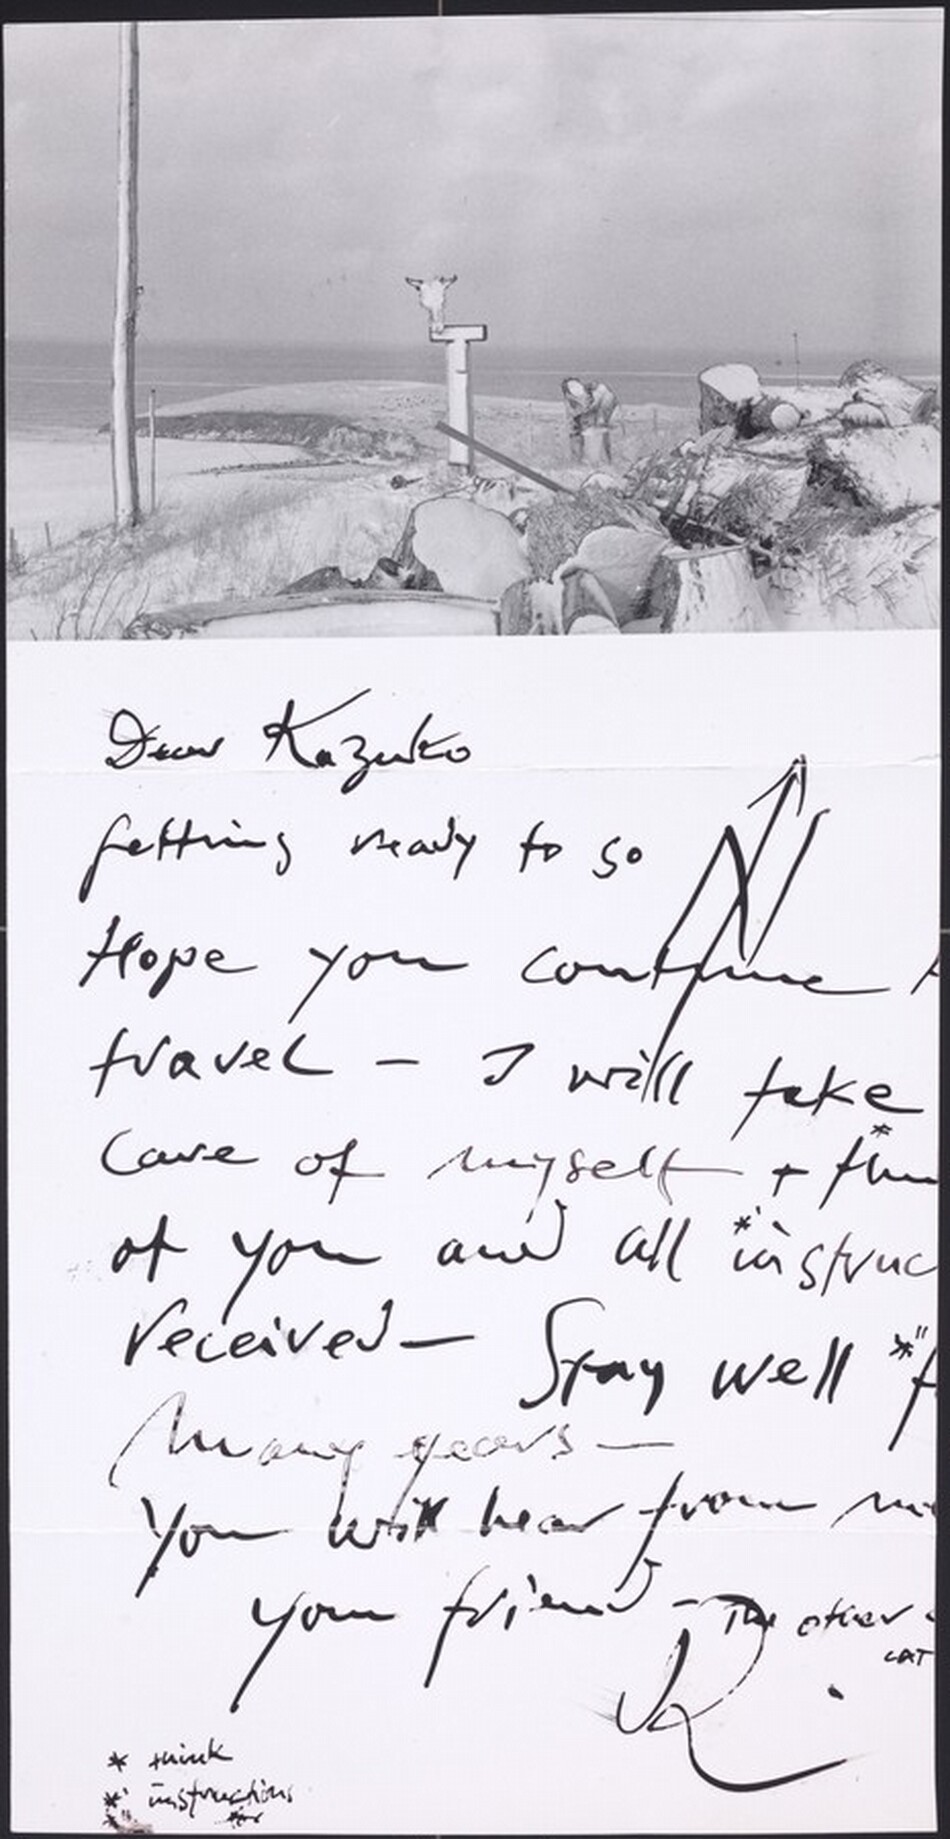 Dear Kazuko
getting ready to go N
Hope you continue
travel – I will take
care of myself + * thin
of you and all *' instruc
received – Stay well *" f
many years –
You will hear from me
your friend – The other
CAT
R.
* think
*' instructions
*" for